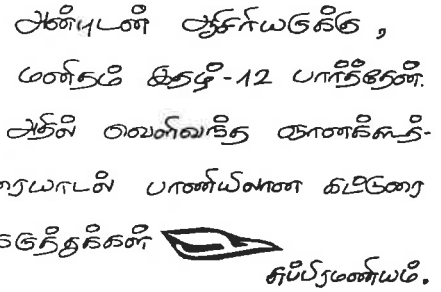 அன்புடன் ஆசிரியருக்கு,
மனிதம் இதழ்-12 பார்த்தேன்.
அதில் வெளிவந்த
ரையாடல் பாணியிலான கட்டுரை
சுப்பிரமணியம்.